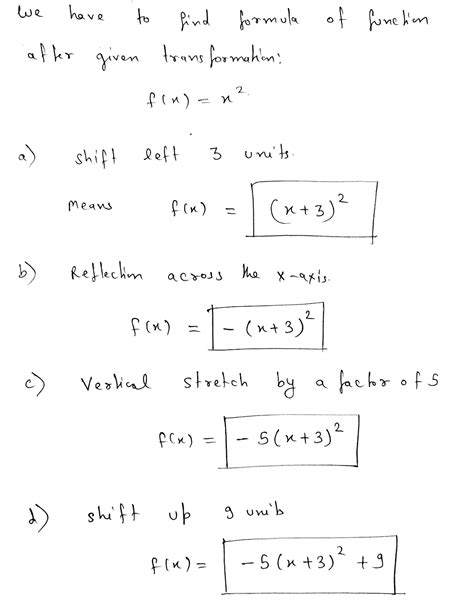 we have to find formula of function
after given transformation:
f(x) = x².
a) shift left 3 units.
Means f(x) = (x+3)²
b) Reflection across the x-axis.
f(x) = - (x+3)²
c) Vertical stretch by a factor of 5
f(x) = - 5(x+3)²
d) shift up 9 units
f(x) = - 5(x+3)² + 9